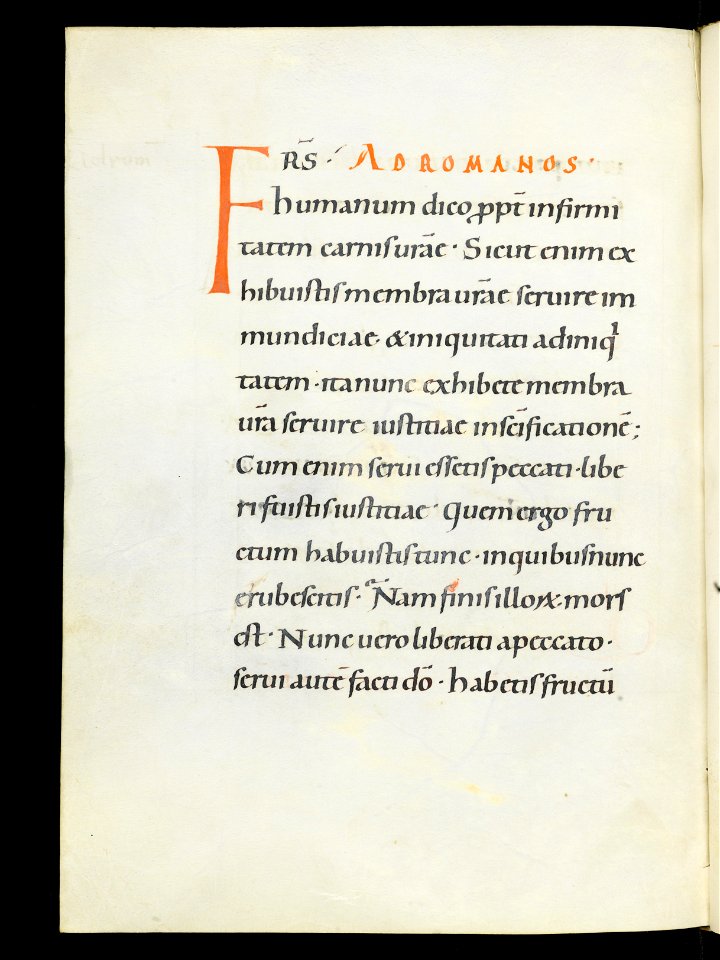 FR̄S · AD ROMANOS ·
humanum dico ꝓpt̄ infirmi
tatem carnis ur̄ae · Sicut enim ex
hibuistis membra ur̄ae seruire im
mundiciae · & iniquitati ad iniqͥ
tatem · ita nunc exhibete membra
ur̄a seruire iustitiae in sc̄ificationē ;
Cum enim serui essetis peccati · libe
ri fuistis iustitiae · Quem ergo fru
ctum habuistis tunc · in quibus nunc
erubescitis · Nam finis illoꝝ · mors
est · Nunc uero liberati a peccato ·
serui autē facti dō · habetis fructū